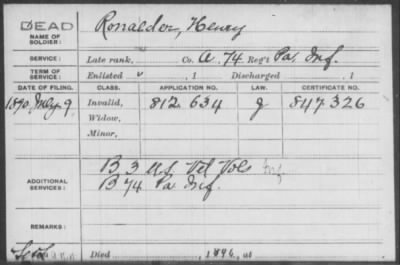 DEAD
NAME OF SOLDIER: Ronalder, Henry
SERVICE: Late rank, Co. A. 74 Reg't Pa Inf.
TERM OF SERVICE: Enlisted , 1 Discharged , 1
DATE OF FILING. CLASS. APPLICATION NO. LAW. CERTIFICATE NO.
1890 July 9 Invalid, 812,634 J 847326
Widow,
Minor,
ADDITIONAL SERVICES: B 3 US Vet Vols Inf.
B 74 Pa Inf.
REMARKS:
Died 1896, at